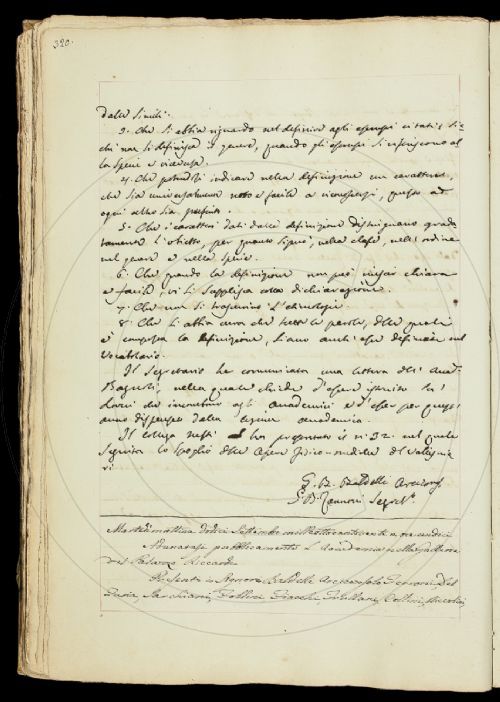 320.
dalli simili.
3. Che si abbia riguardo nel definire agli esempi citati, si=
chè non si definisca il genere, quando gli esempi si riferiscono al
la specie e viceversa.
4. Che potendosi indicare nella definizione un carattere,
che sia universalmente noto e facile a riconoscersi, questo ad
ogni altro sia preferito.
5. Che i caratteri dati dalla definizione distinguano grada
tamente l'obietto, per quanto si può, nella classe, nell'ordine
nel genere e nella specie.
6. Che quando la definizione non può riuscir chiara
e facile, vi si supplisca colla dichiarazione.
7. Che non si trascurino l'etimologie.
8. Che si abbia cura che tutte le parole, delle quali
è composta la definizione, siano anch'esse definite nel
Vocabolario.
Il Segretario ha comunicata una lettera dell' Acc.
Bagnoli, nella quale chiede d'essere
dare da agli Accademici e d'esser per quest'
anno dispensato dalla lezione accademica.
Il collega ha presentato il n. 32. nel quale
seguita lo spoglio delle Opere Fisico-mediche del Vallisnie
ri.
G. B. Baldelli Arciconsº
G. B. Zannoni Segretº
Martedì mattina dodici Settembre mille ottocento venti a ore undici
Adunavasi pubblicamente l'Accademia
del Palazzo Riccardi.
Presenti i Signori Baldelli Arciconsolo, Ferroni, Del
Furia, Sarchiani, Follini, Fiacchi, Collini, Niccolini